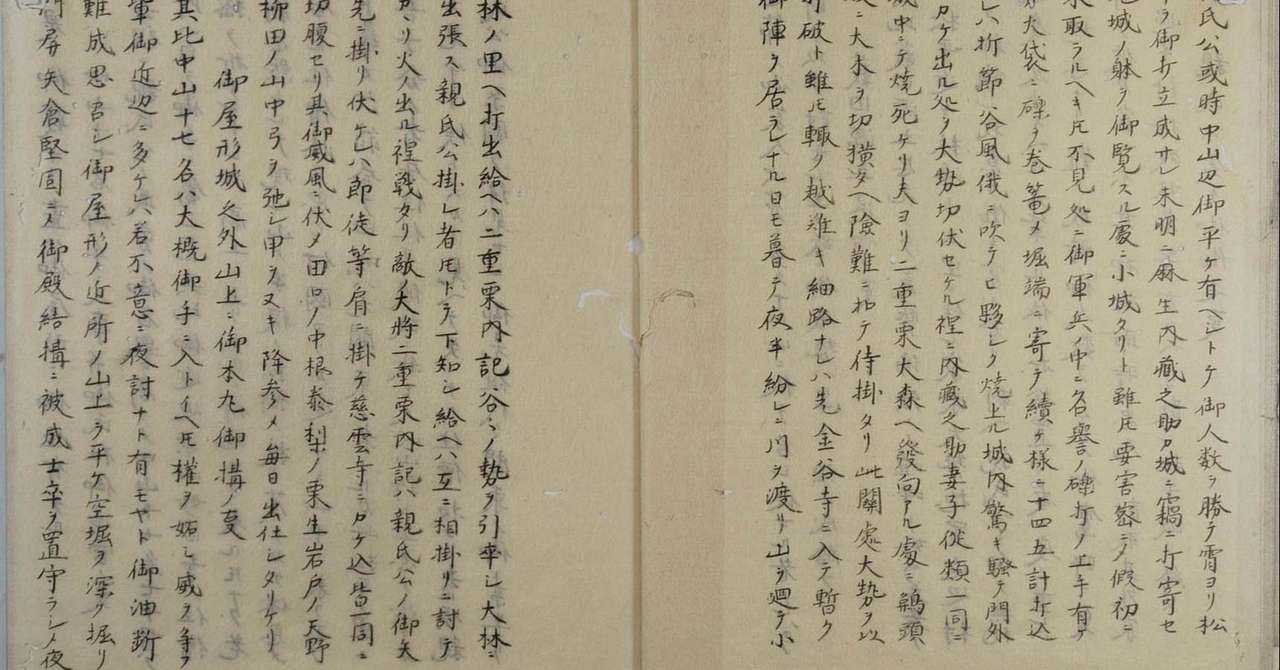 氏公或時中山辺御平ケ有ヘシトケ御人数ヲ勝テ宵ヨリ松
ヲ御打立成サレ未明ニ麻生内藏之助カ城ニ靍ニ打寄セ
城ノ躰ヲ御覽スル處ニ小城タリト雖モ要害密ニメ假初ニ
取ラルヘキ圧不見処ニ御軍兵ノ中ニ名譽ノ礫打ノ上手有ケ
大袋ニ礫ヲ巻篭メ堀端ニ寄テ續ケ様ニ十四五計打込
ハ折節谷風俄ニ吹テヒ夥シク焼上ル城内驚キ騒テ門外
カケ出ル処ヲ大勢切伏セケル裎ニ内藏之助妻子従類一同ニ
城中ニテ焼死ケリ夫ヨリ二重栗大森ヘ發向アル處ニ鵜頭
ニ大木ヲ切横タヘ險難ニ和テ待掛タリ此關處大勢ヲ以
打破ト雖モ輙ク越難キ細路ナレハ先金谷寺ニ入テ暫ク
御陣ヲ居ラレナル日モ暮テ夜半紛レニ川ヲ渡リ山ヲ廻テ小
林ノ里ヘ打出給ヘハ二重栗内記谷ミノ勢ヲ引率シ大林ニ
出張ス親氏公掛レ者圧トテ下知シ給ヘハ互ニ相掛リニ討テ
カヽリ火ノ出ル裎戰タリ敵ノ大将二重栗内記ハ親氏公ノ御矢
先ニ掛リ伏ケレハ郎徒等肩ニ掛ケ慈雲寺ニカケ込皆一同ニ
切腹セリ其御威風ニ伏メ田口ノ中根泰梨ノ栗生岩戸ノ天野
柳田ノ山中弓ヲ弛シ甲ヲヌキ降参メ毎日出仕シタリケリ
御屋形城之外山上ニ御本丸御搆ノ㕝
其比中山十七名ハ大概御手ニ入トイヘ圧權ヲ妬シ威ヲ争フ
軍御近辺ニ多ケレハ若不意ニ夜討ナト有モヤト御油断
難成思召シ御屋形ノ近所ノ山上ヲ平ケ空堀ヲ深ク掘リ
屏矢倉堅固ニメ御殿結搆ニ被成士卒ヲ置守ラシメ夜